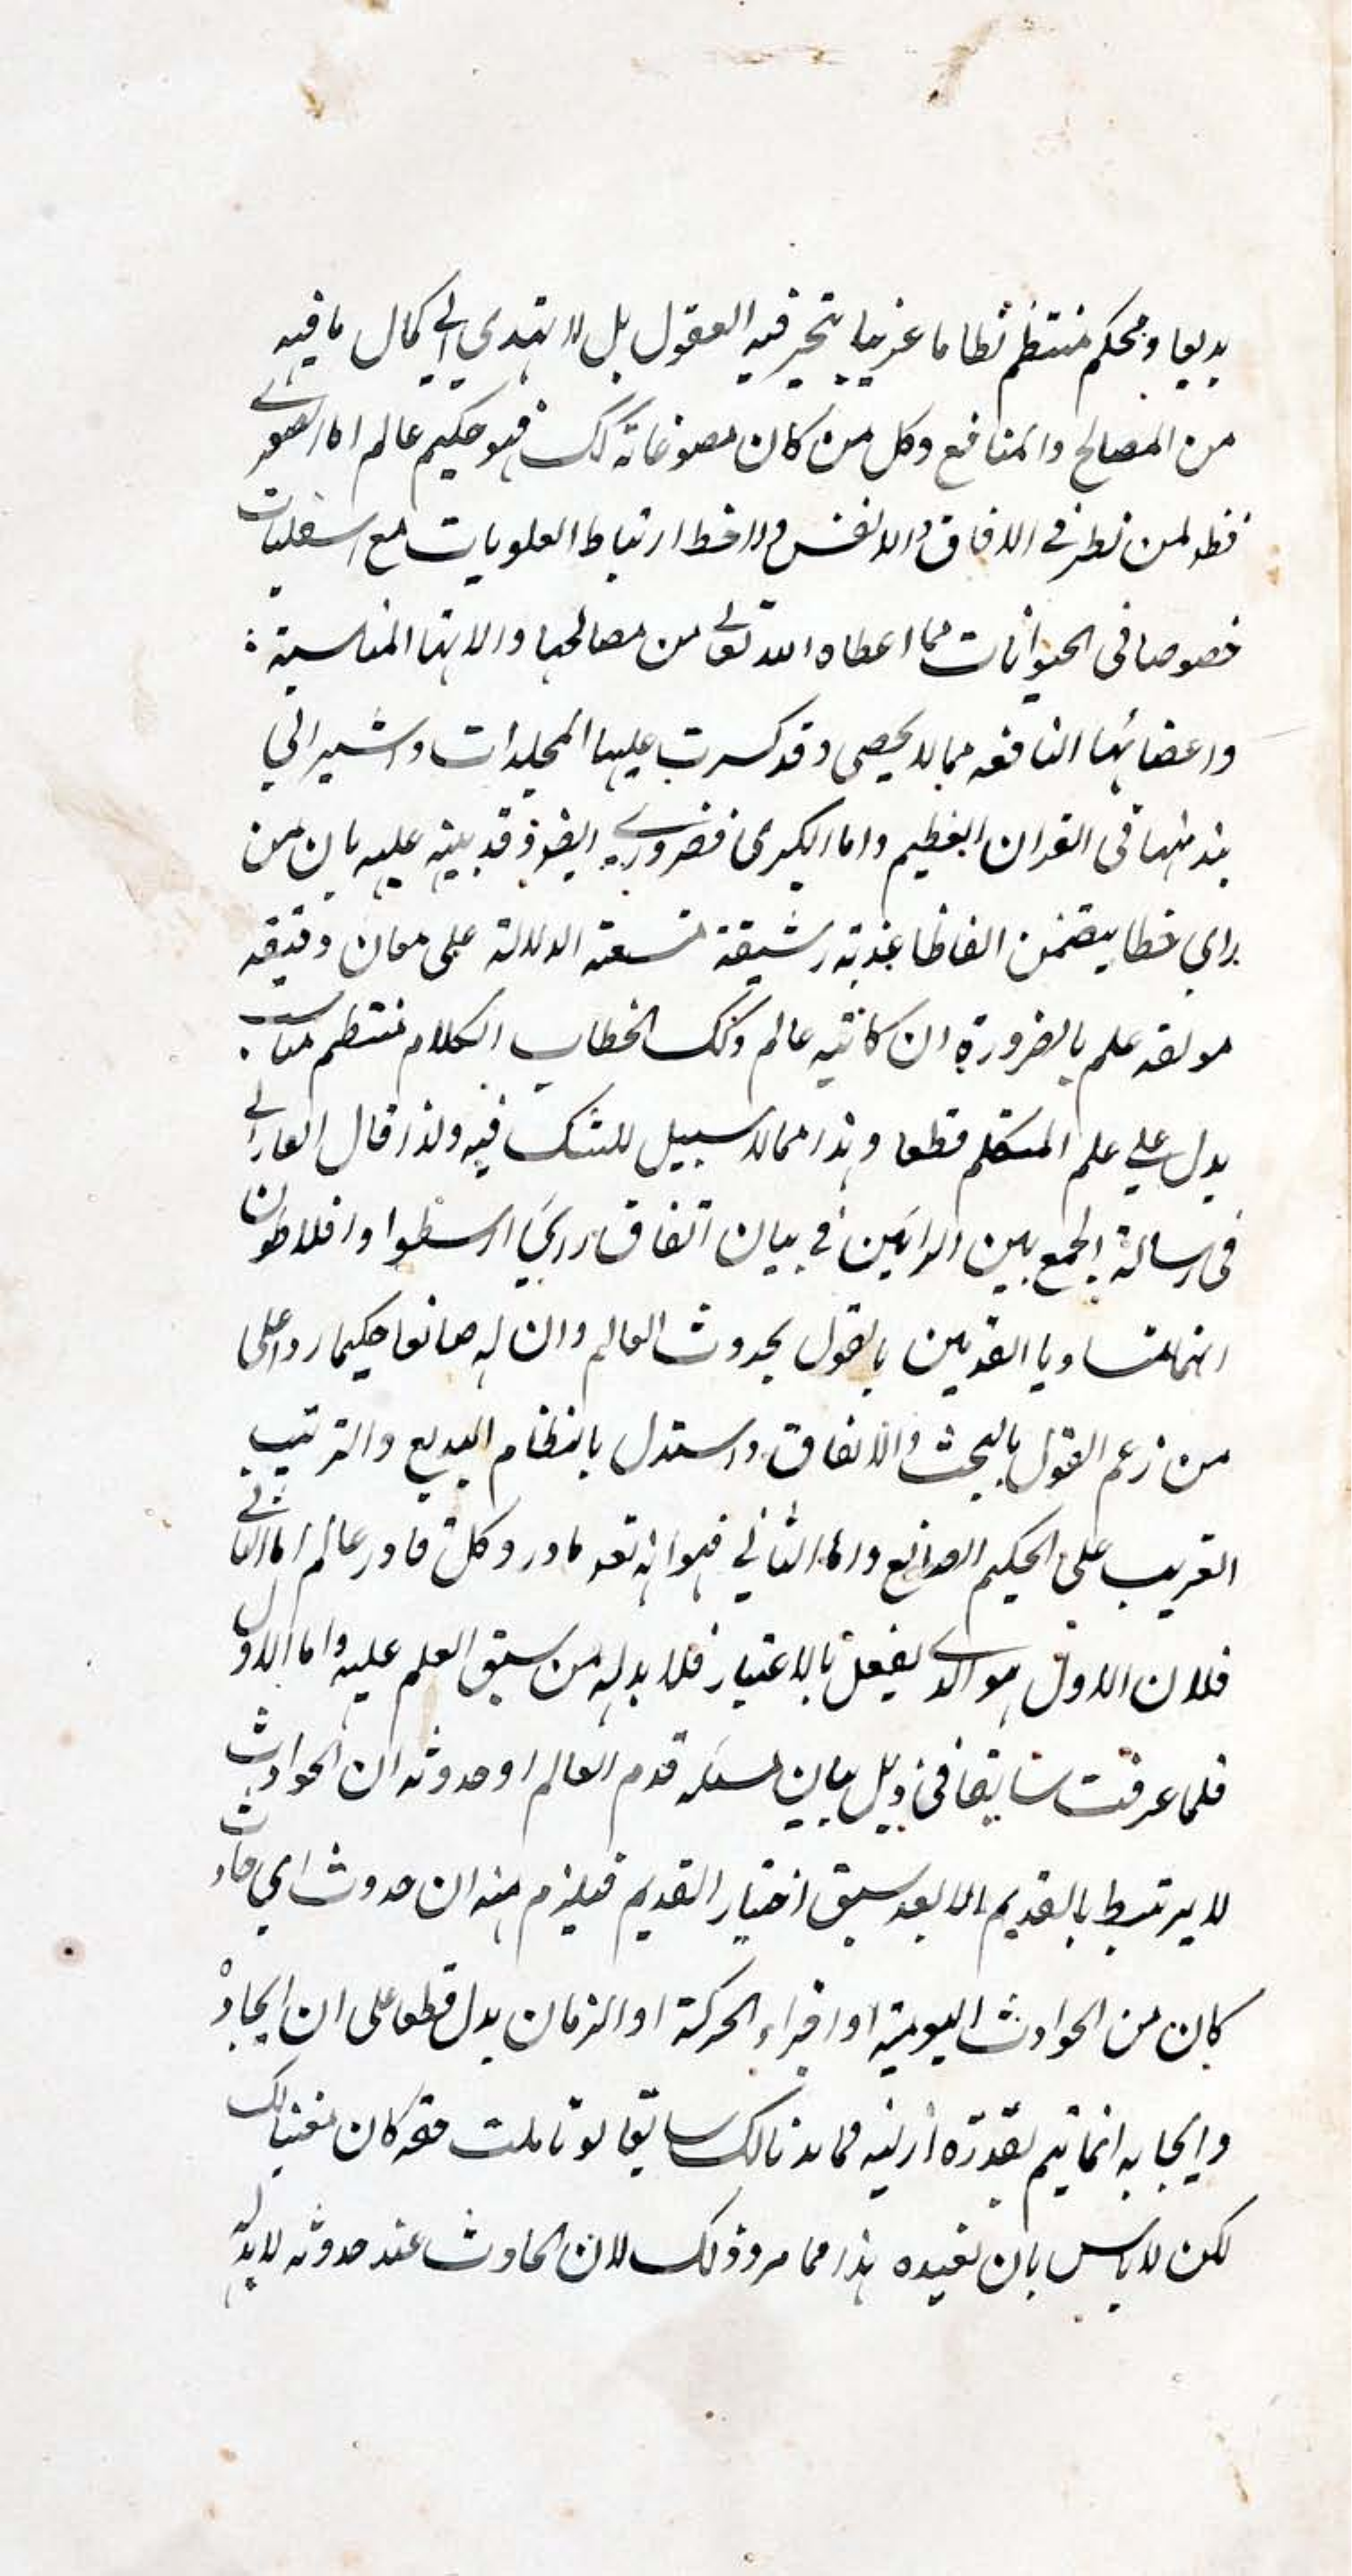 بديعا ومحكم منتظم نظاما غريبا يتحير فيه العقول بل لا يهتدي الى كمال ما فيه
من المصالح والمنافع وكل من كان مصنوعاته كك فهو حكيم عالم اما الصغرى
فظ لمن نظر في الافاق والانفس ولاحظ ارتباط العلويات مع السفليات
خصوصا في الحيوانات مما اعطاه الله تعالى من مصالحها والاتها المناسبة
واعضائها النافعه مما لا يحصى وقد كسرت عليها المجلدات واشير الى
نبذ منها في القران العظيم واما الكبرى فضرورية ايضا وقد ينبه عليه بان من
راي خطا يتضمن الفاظا عذبة رشيقة متسعة الدلالة على معان دقيقه
مونقه علم بالضرورة ان كاتبه عالم وكك الخطاب الكلام منتظم مناسب
يدل على علم المتكلم قطعا وهذا مما لا سبيل للشك فيه ولذا قال الفارابي
في رسالة الجمع بين الرايين في بيان اتفاق رايي ارسطوا وافلاطون
انهما تساويا القدمين بالقول بحدوث العالم وان له صانعا حكيما ردا على
من زعم القول بالبحث والاتفاق واستدل بالنظام البديع والترتيب
القريب على الحكيم الصانع واما الثاني فهو انه تعالى قادر وكل قادر عالم اما الثاني
فلان الاول هو الذي يفعل بالاختيار فلا بد له من سبق العلم عليه واما الاول
فلما عرفت سابقا في ذيل بيان مسئله قدم العالم او حدوثه ان الحوادث
لا يرتبط بالقديم الا بعد سبق اختيار القديم فيلزم منه ان حدوث اي حادث
كان من الحوادث اليومية او اجزاء الحركة او الزمان يدل قطعا على ان ايجاده
وايجابه انما يتم بقدرة ازلية فما ذكرنا لك سابقا لو تاملت حقه كان مغنيا لك
لكن لا باس بان نفيده هذا مما مر وذلك لان الحادث عند حدوثه لا بد له